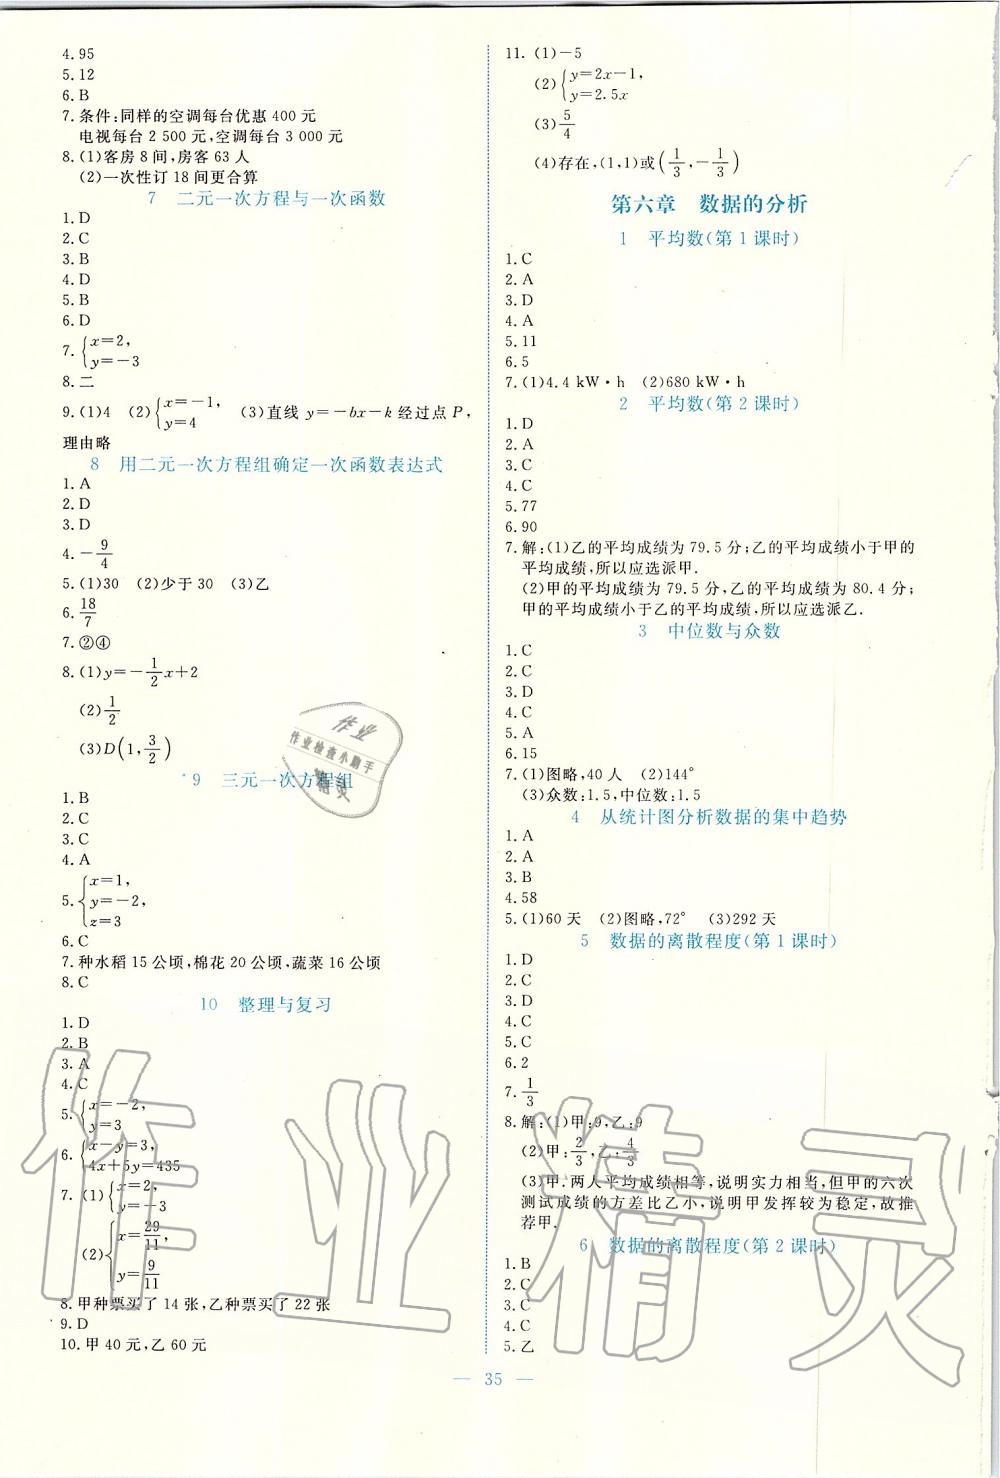 4.95
5.12
6.B
7.条件:同样的空调每台优惠 400 元
电视每台 2 500 元,空调每台 3 000 元
8.(1)客房 8 间,房客 63 人
(2)一次性订 18 间更合算
7 二元一次方程与一次函数
1.D
2.C
3.B
4.D
5.B
6.D
7.{x=2,
y=-3
8.二
9.(1)4 (2){x=-1, y=4 (3)直线 y=-bx-k 经过点 P,
理由略
8 用二元一次方程组确定一次函数表达式
1.A
2.D
3.D
4.-9/4
5.(1)30 (2)少于 30 (3)乙
6.18/7
7.②④
8.(1)y=-1/2x+2
(2)1/2
(3)D(1,3/2)
9 三元一次方程组
1.B
2.C
3.C
4.A
5.{x=1,
y=-2,
z=3
6.C
7.种水稻 15 公顷,棉花 20 公顷,蔬菜 16 公顷
8.C
10 整理与复习
1.D
2.B
3.A
4.C
5.{x=-2,
y=3
6.{x-y=3,
4x+5y=435
7.(1){x=2,
y=-3
(2){x=29/11,
y=9/11
8.甲种票买了 14 张,乙种票买了 22 张
9.D
10.甲 40 元,乙 60 元
11.(1)-5
(2){y=2x-1,
y=2.5x
(3)5/4
(4)存在,(1,1)或(1/3,-1/3)
第六章 数据的分析
1 平均数(第 1 课时)
1.C
2.A
3.D
4.A
5.11
6.5
7.(1)4.4 kW·h (2)680 kW·h
2 平均数(第 2 课时)
1.D
2.A
3.C
4.C
5.77
6.90
7.解:(1)乙的平均成绩为 79.5 分;乙的平均成绩小于甲的
平均成绩,所以应选派甲.
(2)甲的平均成绩为 79.5 分,乙的平均成绩为 80.4 分;
甲的平均成绩小于乙的平均成绩,所以应选派乙.
3 中位数与众数
1.C
2.C
3.D
4.C
5.A
6.15
7.(1)图略,40 人 (2)144°
(3)众数:1.5,中位数:1.5
4 从统计图分析数据的集中趋势
1.A
2.A
3.B
4.58
5.(1)60 天 (2)图略,72° (3)292 天
5 数据的离散程度(第 1 课时)
1.D
2.C
3.D
4.C
5.C
6.2
7.1/3
8.解:(1)甲:9,乙:9
(2)甲:2/3,乙:4/3
(3)甲.两人平均成绩相等,说明实力相当,但甲的六次
测试成绩的方差比乙小,说明甲发挥较为稳定,故推
荐甲.
6 数据的离散程度(第 2 课时)
1.B
2.C
3.C
4.C
5.乙
— 35 —
作业
作业检查小助手
精灵
作业精灵